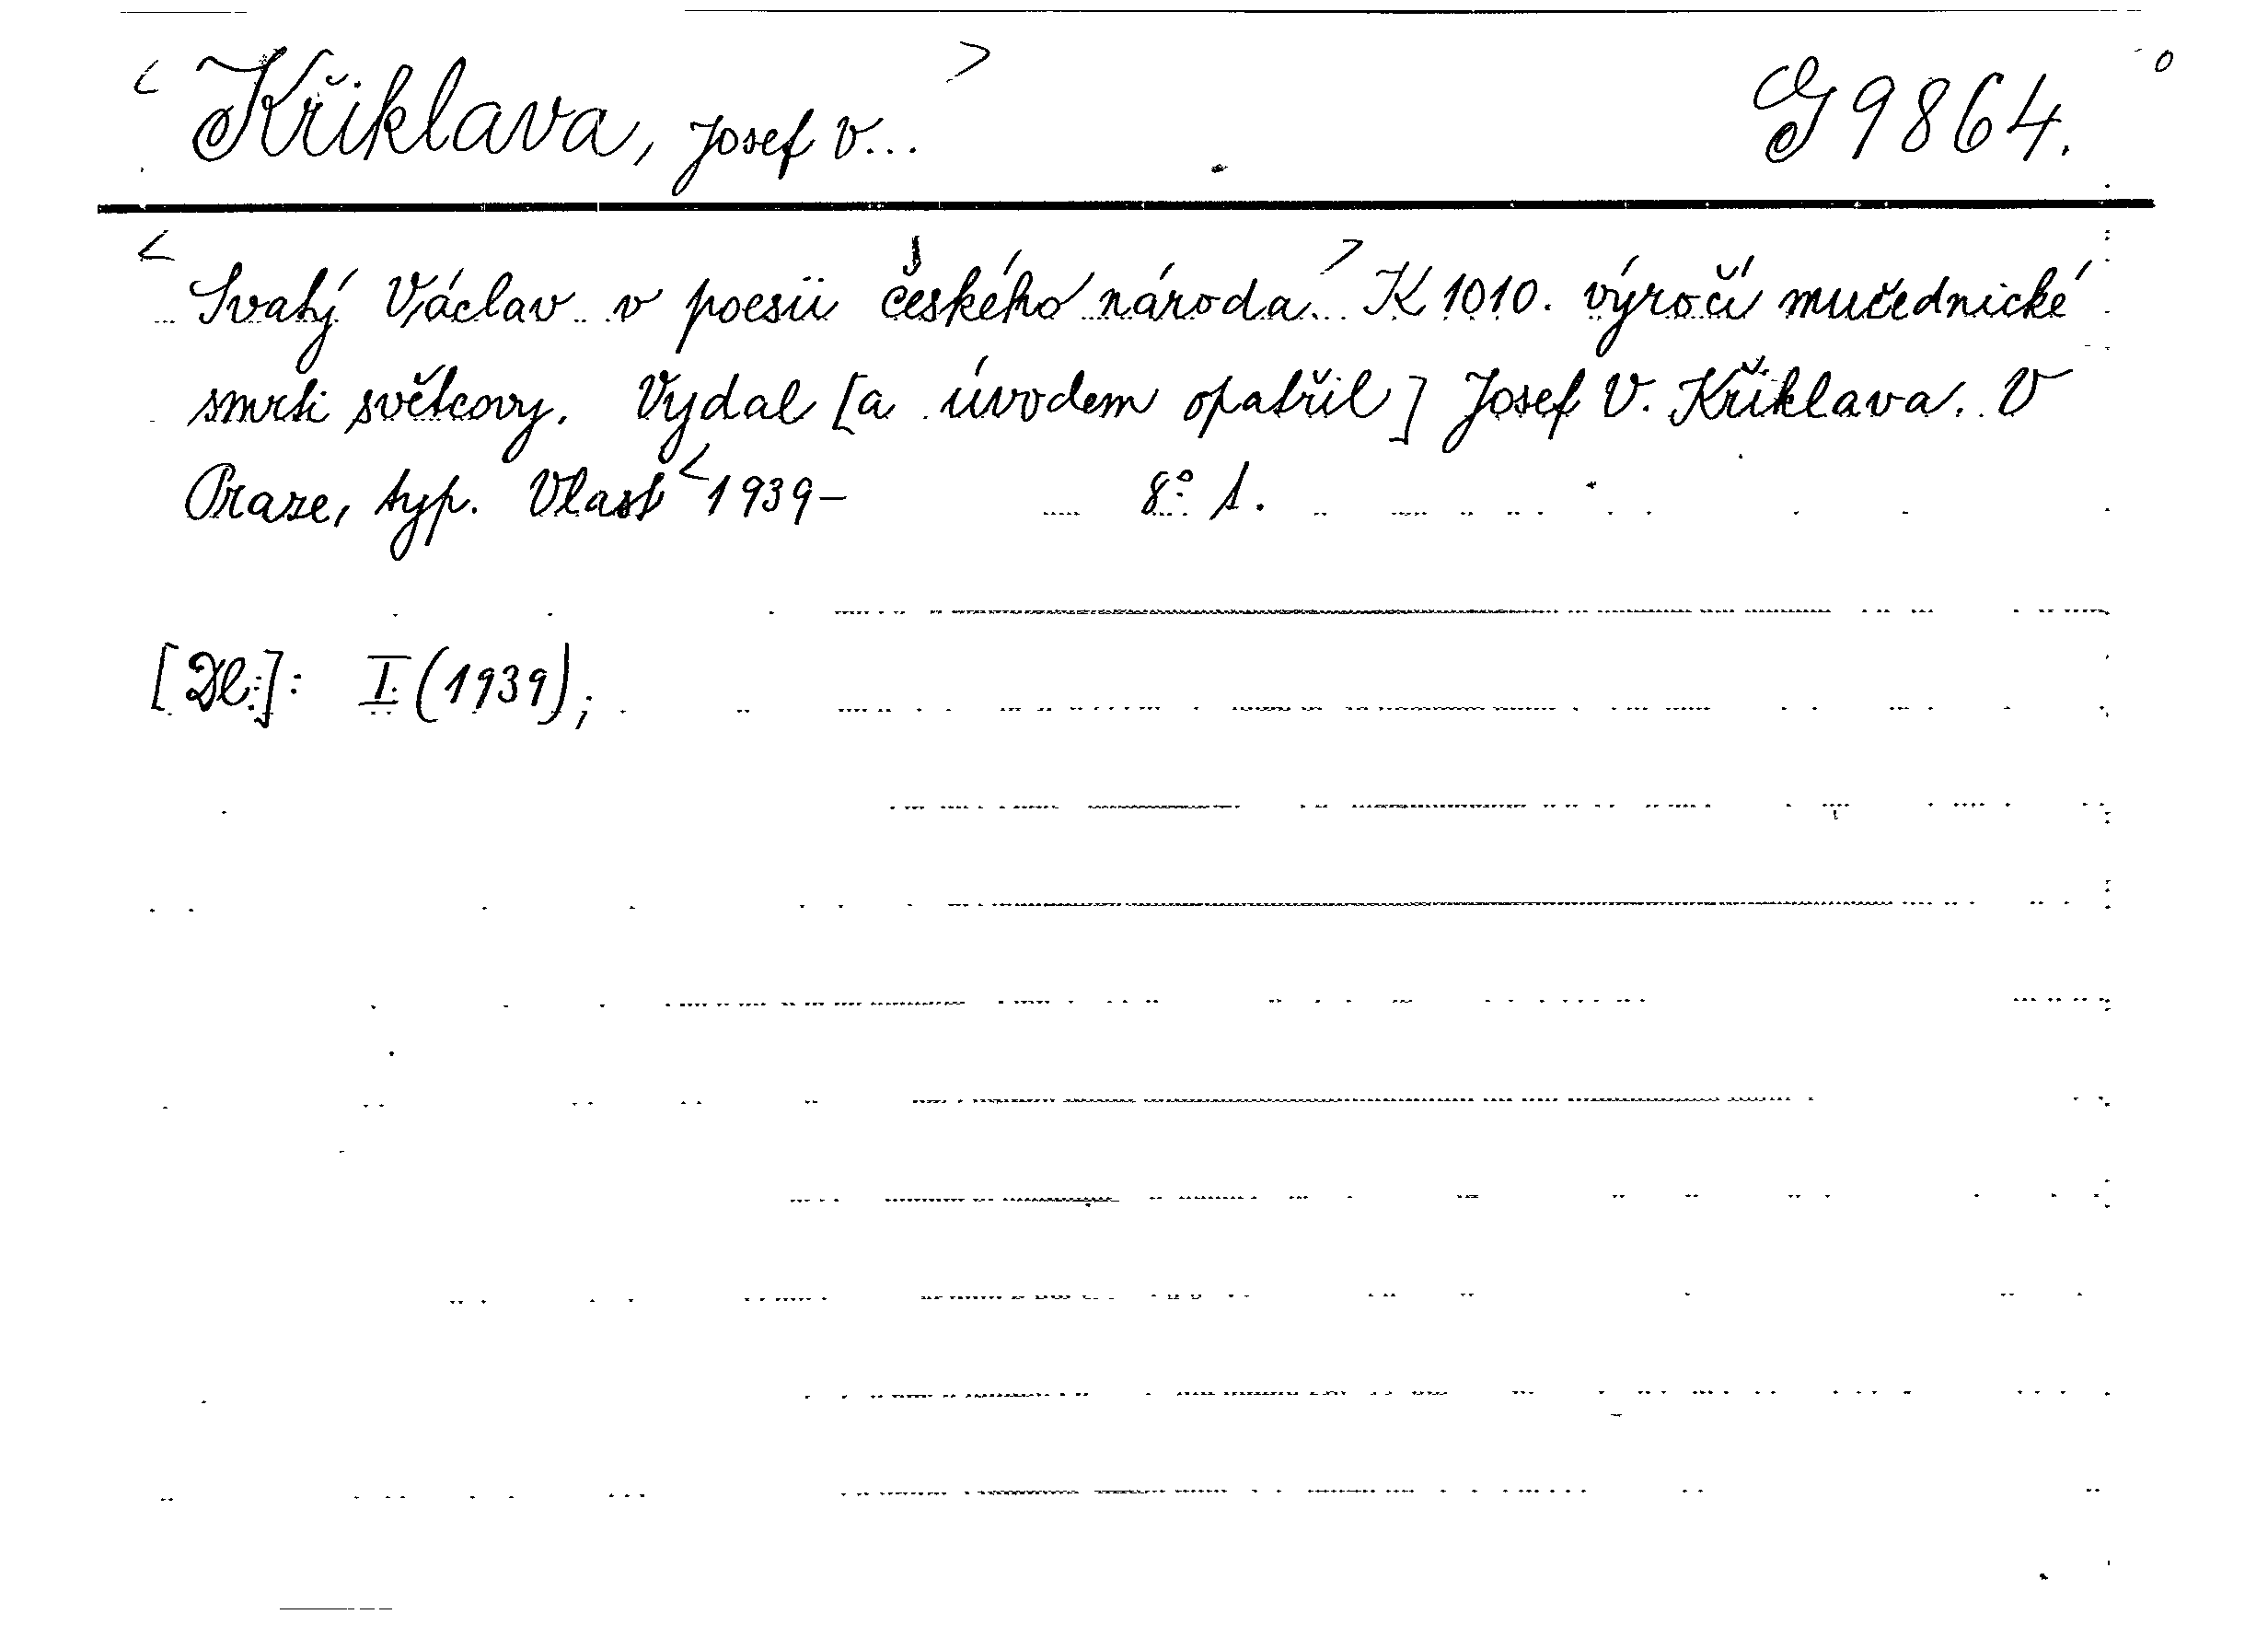 < Křiklava, Josef V... > G 9864.
< Svatý Václav v poesii českého národa. > K 1010. výročí mučednické
smrti světcovy. Vydal [a úvodem opatřil] Josef V. Křiklava. V
Praze, typ. Vlast < 1939- 8° 1.
[Dl.]: I (1939),